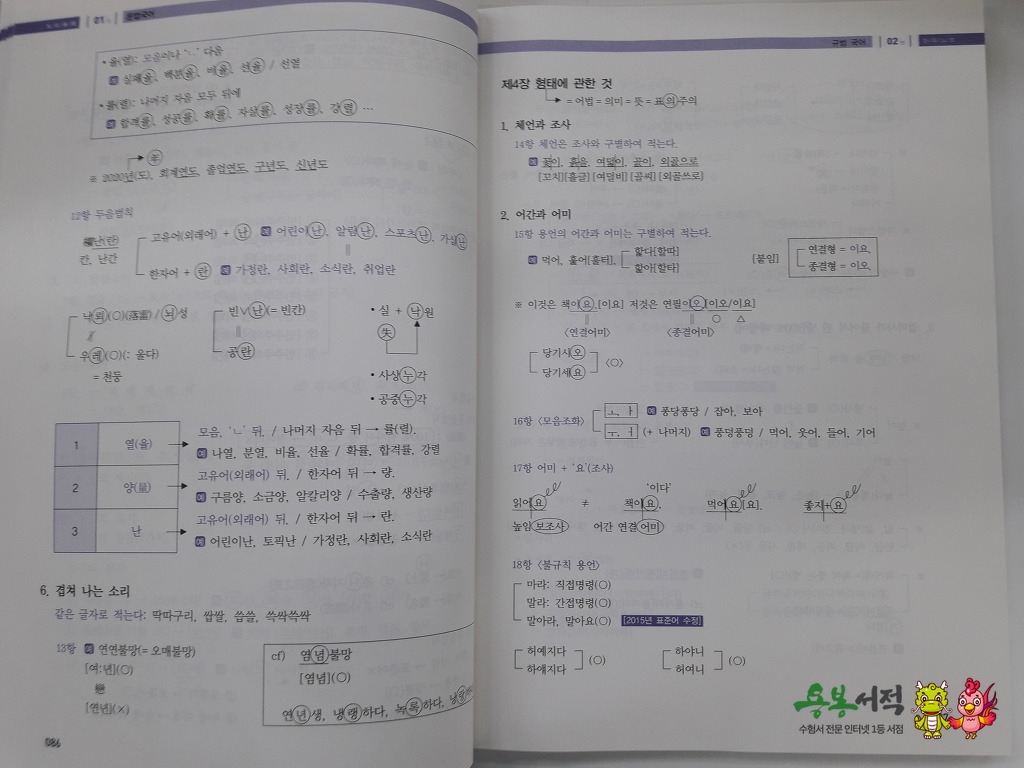 01
문법국어
• 율(열): 모음이나 'ㄴ' 다음
예 실패율, 백분율, 비율, 선율 / 선열
• 률(렬): 나머지 자음 모두 뒤에
예 합격률, 성공률, 확률, 자살률, 성장률, 강렬 …
年
※ 2020년(도), 회계연도, 졸업연도, 구년도, 신년도
12항 두음법칙
난(란)
칸, 난간
고유어(외래어) + 난 예 어린이난, 알림난, 스포츠난, 가십난
한자어 + 란 예 가정란, 사회란, 소식란, 취업란
낙뢰(○)(落雷) / 뇌성
우레(○)(○: 울다)
= 천둥
빈∨난(= 빈칸)
공란
• 실 + 낙원
失
• 사상누각
• 공중누각
1 열(율) → 모음, 'ㄴ' 뒤. / 나머지 자음 뒤 → 률(렬).
예 나열, 분열, 비율, 선율 / 확률, 합격률, 강렬
2 양(量) → 고유어(외래어) 뒤. / 한자어 뒤 → 량.
예 구름양, 소금양, 알칼리양 / 수출량, 생산량
3 난 → 고유어(외래어) 뒤. / 한자어 뒤 → 란.
예 어린이난, 토픽난 / 가정란, 사회란, 소식란
6. 겹쳐 나는 소리
같은 글자로 적는다: 딱따구리, 쌉쌀, 씁쓸, 쓱싹쓱싹
13항 예 연연불망(= 오매불망)
[여ː년](○)
戀
[연년](×)
cf) 염념불망
[염념](○)
연년생, 냉랭하다, 녹록하다,
086
규범 국어
02
제4장 형태에 관한 것
= 어법 = 의미 = 뜻 = 표의주의
1. 체언과 조사
14항 체언은 조사와 구별하여 적는다.
예 꽃이, 흙을, 여덟이, 곬이, 외곬으로
[꼬치][흘글][여덜비][골씨][외골쓰로]
2. 어간과 어미
15항 용언의 어간과 어미는 구별하여 적는다.
예 먹어, 훑어[훌터],
핥다[할따]
핥아[할타]
[붙임]
연결형 = 이요,
종결형 = 이오.
※ 이것은 책이요,[이요] 저것은 연필이오[이오/이요]
○ △
〈연결어미〉 〈종결어미〉
당기시오
당기세요
〈○〉
16항 〈모음조화〉
ㅗ, ㅏ 예 퐁당퐁당 / 잡아, 보아
ㅜ, ㅓ (+ 나머지) 예 풍덩풍덩 / 먹어, 웃어, 들어, 기어
17항 어미 + '요'(조사)
'이다'
읽어요 ≠ 책이요, 먹어요[요]. 좋지+요
높임 보조사 어간 연결어미
18항 〈불규칙 용언〉
마라: 직접명령(○)
말라: 간접명령(○)
말아라, 말아요(○) [2015년 표준어 수정]
허예지다
하얘지다
(○)
하야니
허여니
(○)
용봉서적
수험서 전문 인터넷 1등 서점